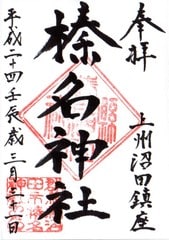 奉拝
上州沼田鎮座
榛名神社
平成二十四壬辰歳三月三十一日